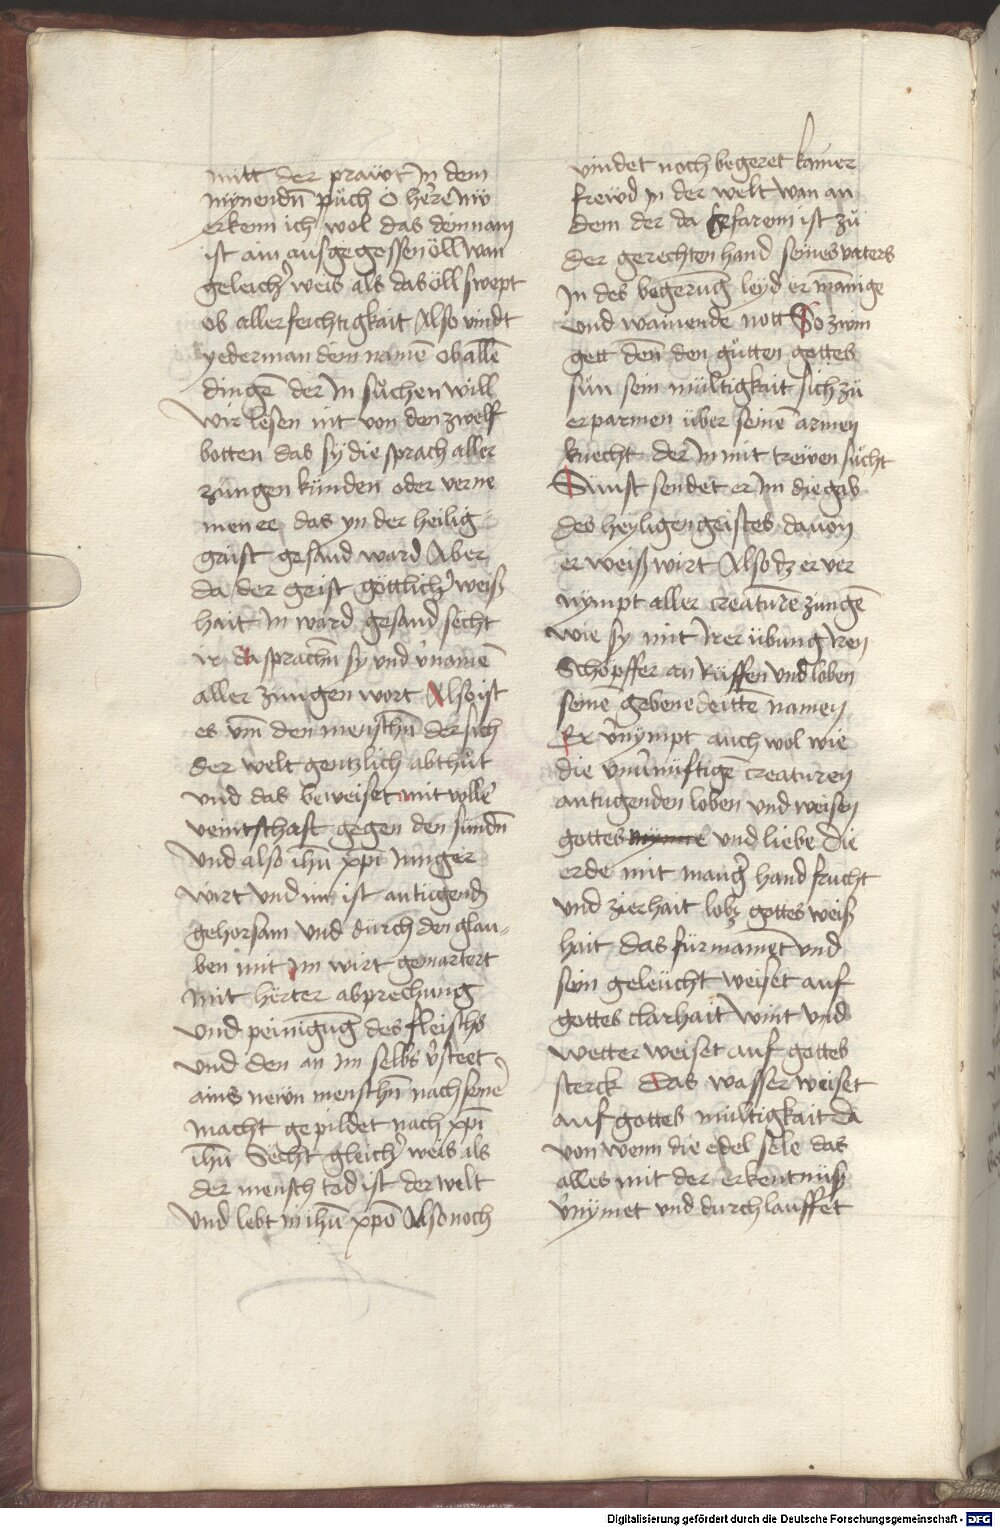 mitt der präwt Jn dem
mynenden̄ půch O here nw
erkenn ich wol das dein nam
ist ain aus gegossen öll wan
geleicher weis als das öll swept
ob aller feichtigkait Also vindt
yederman dein namē ob allē
dingē der Jn sůchen will
wir lesen nit von den zwelf
botten das sÿ die sprach aller
zungen kunden oder verne
men ee das yn der heilig
gaist gesand ward Aber
da der geist göttlicher weiß
hait Jn ward gesand secht
ir da sprachn̄ sy vnd v̉namē
aller zungen wort Also ist
es vm̄ den menschn̄ der sich
der welt gentzlich abthůt
vnd das beweiset mit voller
veintschaft gegen den sünd̄n
vnd also ih̄u xp̄i Junger
wirt vnd im ist an tugend
gehorsam vnd durch den glau-
ben mit Jm wirt gemartert
mit herter abprechung
vnd peinigūg des fleischs
vnd den an im selbs v̉steet
ains newn menschn̄ nach seiner
macht gepildet nach xp̄i
ih̄u Secht gleicher weis als
der mensch tod ist der welt
vnd lebt in ih̄u xp̄o Also noch
vindet noch begeret kainer
frewd Jn der welt wan an
dem der da gefaren ist zů
der gerechten hand seines vaters
Jn des begerung leyd er manige
vnd wainende nott So zwin
gett den̄ den gůtten gottes
sun sein miltigkait sich zů
erparmen über seinē armen
knecht der Jn mit trewen sůcht
Sunst sendet er Jm die gab
des heyligen geistes dauon
er weiß wirt Also dz er ver
nympt aller creaturē zungē
wie sy mit Jrer übung Jren
Schöpffer an Rüffen vnd loben
seinē gebenedeittē namen
Er v̉nympt auch wol wie
die vnu̇nüftigē creaturen
an tugenden loben vnd weisen
gottes mynne vnd liebe die
erde mit manger hand frucht
vnd zierhait lobz gottes weiß
hait das fürmamēt vnd
sein geleücht weiset auf
gottes clarhait wint vnd
wetter weiset auf gottes
sterck Das wasser weiset
auf gottes miltigkait da
von wenn die edel sele das
alles mit der erkentnüß
v̉nymet vnd durch lauffet
Digitalisierung gefördert durch die Deutsche Forschungsgemeinschaft - DFG